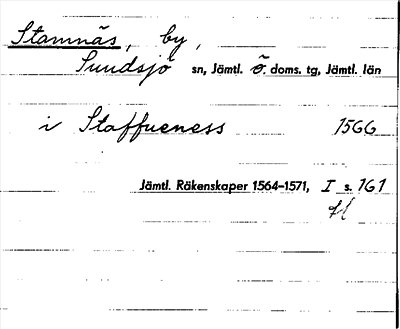 Stamnäs, by,
Sundsjö sn, Jämtl. ö. doms. tg, Jämtl. län
i Staffueness 1566
Jämtl. Räkenskaper 1564-1571, I s. 161